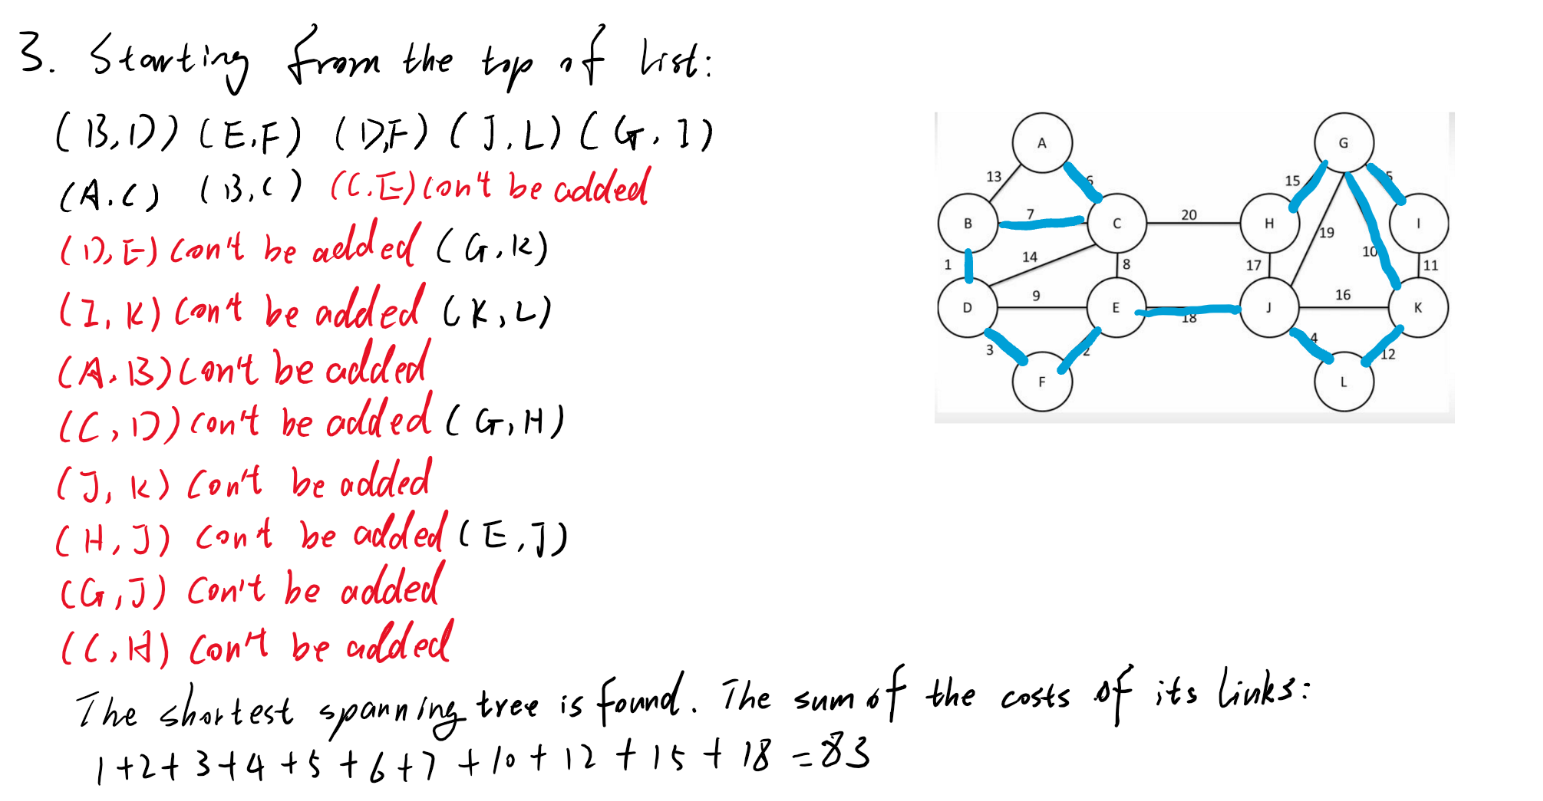 3. Starting from the top of list:
(B,D) (E,F) (D,F) (J,L) (G,I)
(A,C) (B,C) (C,E) can't be added
(D,E) can't be added (G,K)
(I,K) can't be added (K,L)
(A,B) can't be added
(C,D) can't be added (G,H)
(J,K) can't be added
(H,J) can't be added (E,J)
(G,J) can't be added
(C,H) can't be added
The shortest spanning tree is found. The sum of the costs of its links:
1+2+3+4+5+6+7+10+12+15+18=83
A G
13 6 15 5
B 7 C 20 H I
19
1 14 8 17 10 11
D 9 E 18 J 16 K
3 2 4 12
F L